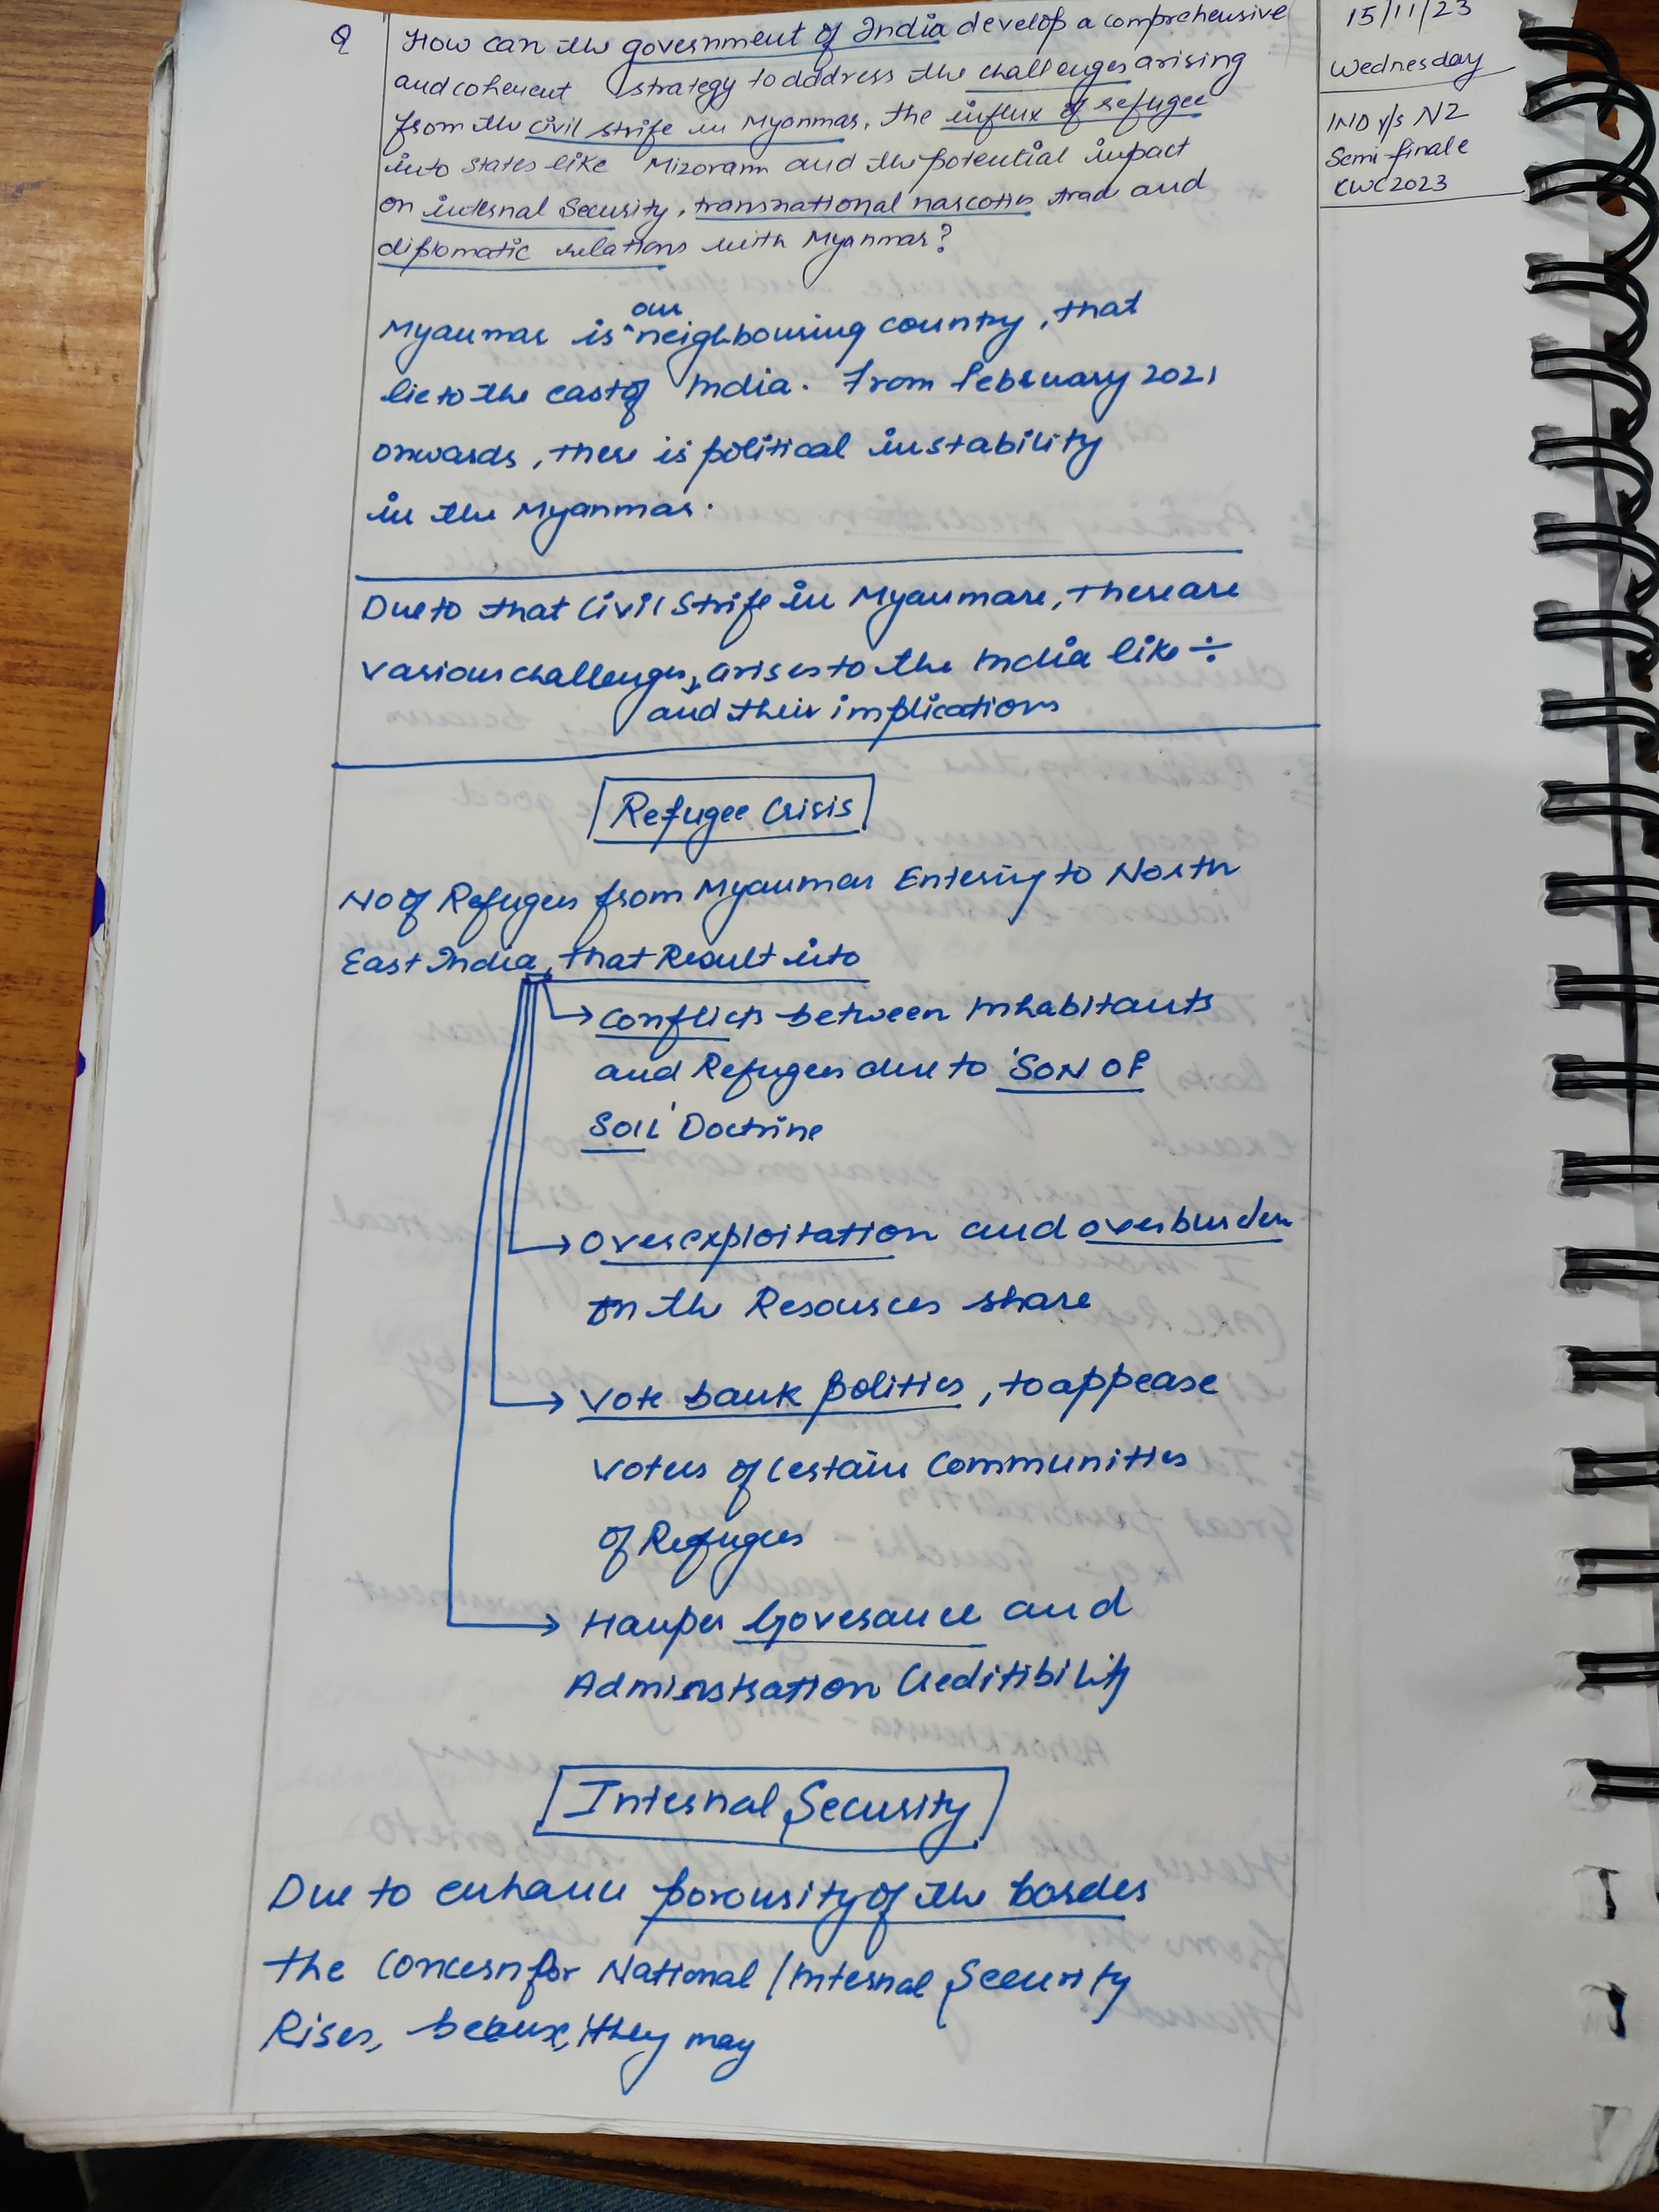 Q How can the government of India develop a comprehensive
and coherent strategy to adddress the challenges arising
from the civil strife in Myanmar, the influx of refugee
into states like Mizoram and the potential impact
on internal Security, transnational narcotics trad and
diplomatic relations with Myanmar?
15/11/23
Wednesday
IND v/s NZ
Semi-finale
CWC2023
our
Myanmar is ^ neighbouring country, that
lie to the east of India. From February 2021
onwards, there is political instability
in the Myanmar.
Due to that Civil Strife in Myanmare, There are
various challenges, arises to the India like ÷
and their implications
Refugee Crisis
No of Refugees from Myanmar Entering to North
East India, that Result into
→ Conflicts between Inhabitants
and Refugees due to 'SON OF
SOIL' Doctrine
→ Overexploitation and overburden
on the Resources share
→ Vote bank politics, to appease
voters of certain Communities
of Refugees
→ Hamper Goverance and
Administration Creditibility
Internal Security
Due to enhance porousity of the border
the concern for National / Internal Security
Rises, becaux, they may